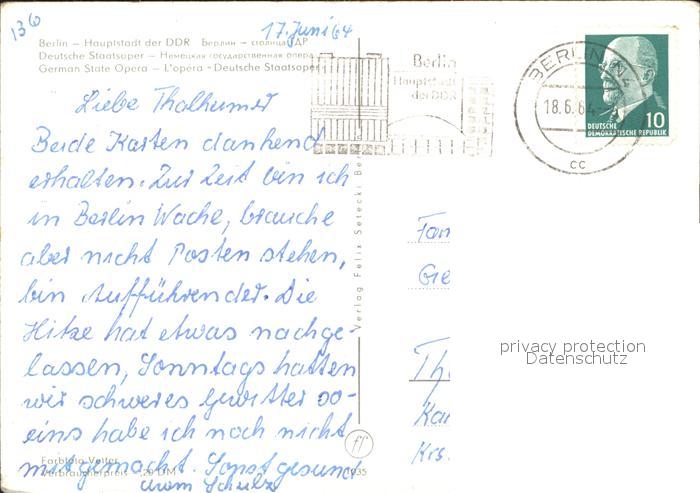 136
17. Juni 64
Berlin – Hauptstadt der DDR Берлин – столица ДР
Deutsche Staatsoper – Немецкая государственная опера
German State Opera – L'opéra - Deutsche Staatsoper
Berlin
Hauptstadt
der DDR
BERLIN N
18.6.64
cc
DEUTSCHE
DEMOKRATISCHE REPUBLIK
10
Liebe Thalheimer
Beide Karten dankend
erhalten. Zur Zeit bin ich
in Berlin Wache, brauche
aber nicht Posten stehen,
bin Aufführender. Die
Hitze hat etwas nachge-
lassen, Sonntags hatten
wir schweres Gewitter so-
eins habe ich noch nicht
mitgemacht. Sonst gesund
Schulz
Verlag Felix Setecki Ber
Fam
Ge
Th
Kar
Krs.
privacy protection
Datenschutz
Farbfoto Vetter
Verbraucherpreis -,20 DM
ff
935